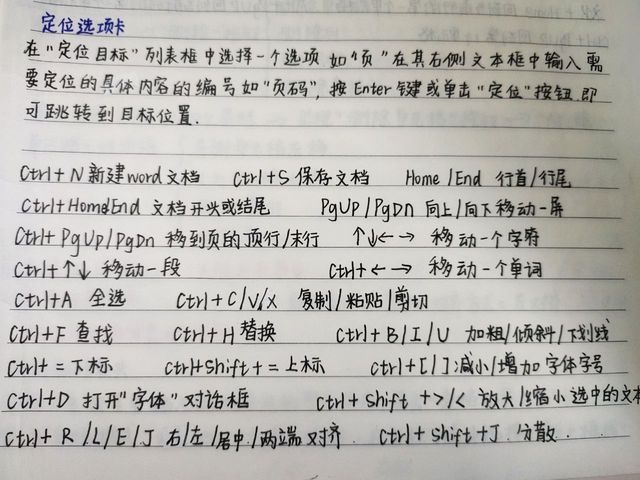 定位选项卡
在“定位目标”列表框中选择一个选项 如“页”在其右侧文本框中输入需
要定位的具体内容的编号如“页码”，按Enter键或单击“定位”按钮.即
可跳转到目标位置.
Ctrl+N新建word文档 Ctrl+S保存文档 Home/End 行首/行尾
Ctrl+Home&End 文档开头或结尾 PgUp/PgDn 向上/向下移动一屏
Ctrl+PgUp/PgDn 移到页的顶行/末行 ↑↓←→ 移动一个字符
Ctrl+↑↓ 移动一段 Ctrl+←→ 移动一个单词
Ctrl+A 全选 Ctrl+C/V/X 复制/粘贴/剪切
Ctrl+F 查找 Ctrl+H 替换 Ctrl+B/I/U 加粗/倾斜/下划线
Ctrl+=下标 Ctrl+Shift+=上标 Ctrl+[/]减小/增加字体字号
Ctrl+D 打开“字体”对话框 Ctrl+Shift+>/< 放大/缩小选中的文本
Ctrl+R/L/E/J 右/左/居中/两端对齐. Ctrl+Shift+J.分散.